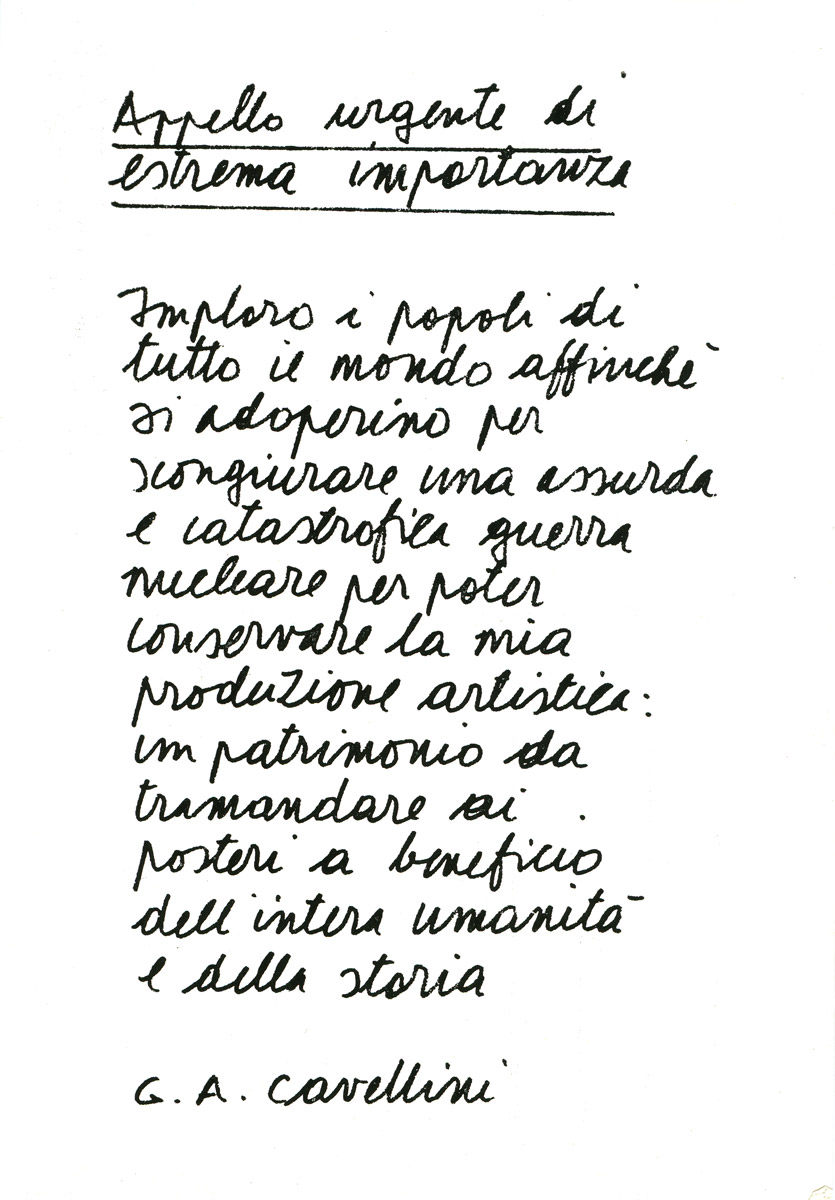 Appello urgente di
estrema importanza
Imploro i popoli di
tutto il mondo affinchè
si adoperino per
scongiurare una assurda
e catastrofica guerra
nucleare per poter
conservare la mia
produzione artistica:
un patrimonio da
tramandare ai
posteri a beneficio
dell'intera umanità
e della storia
G. A. Cavellini